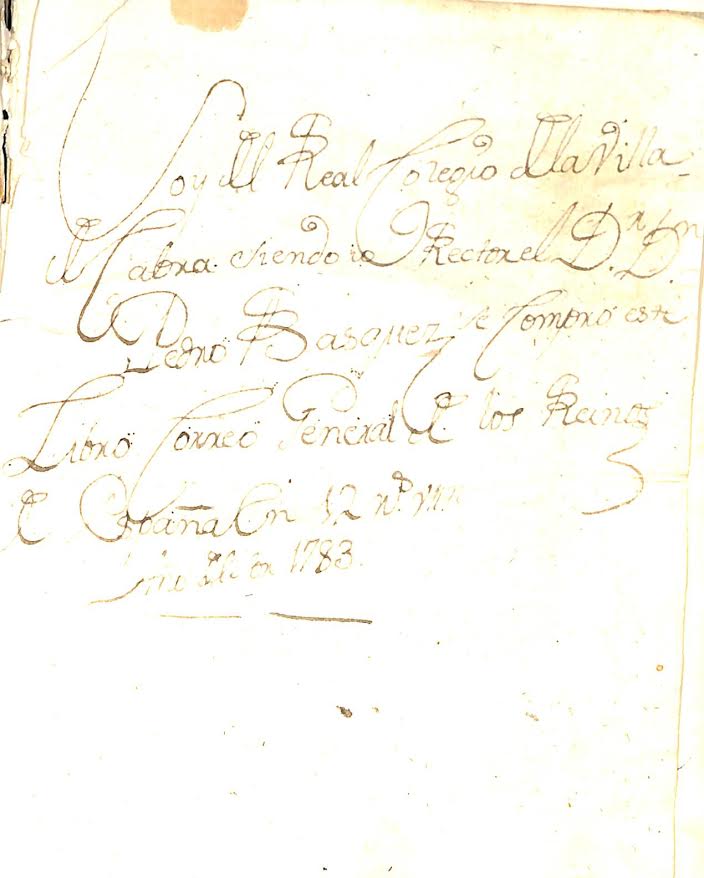 Soy del Real Colegio de la Villa
de Cabra siendo Rector el D.r D.n
Pedro Basquez se Compro este
Libro Correo General de los Reinos
de España En 12 r.s
Año de 1783.